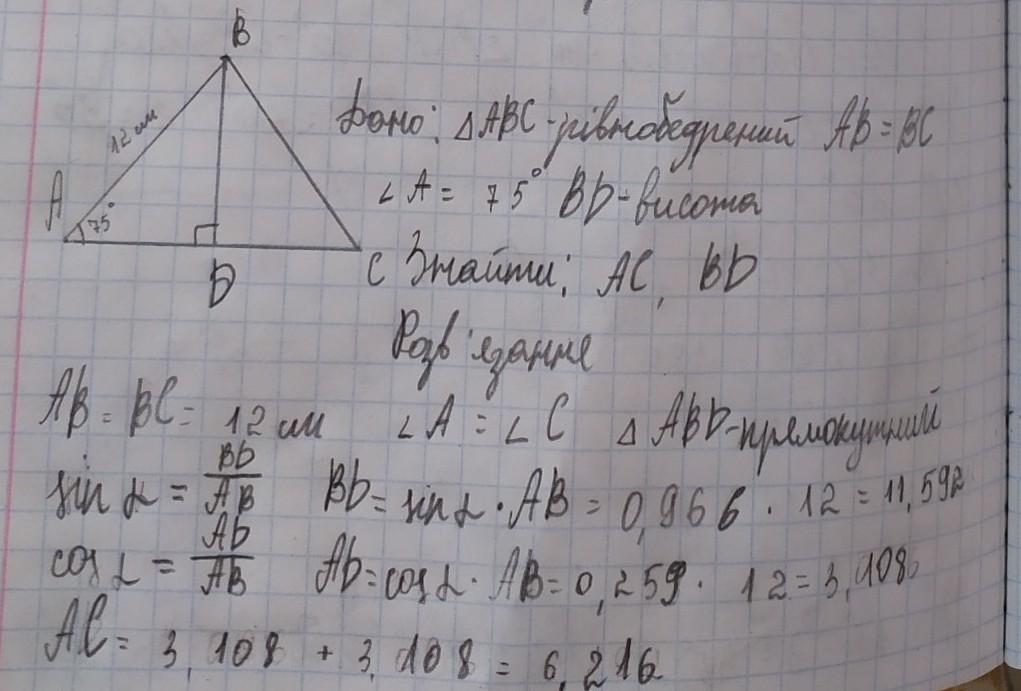 B
12 см
Дано: △ABC - рівнобедрений AB = BC
A 75°
∠A = 75° BD - висота
D
C Знайти: AC, BD
Розв'язання
AB = BC = 12 см ∠A = ∠C △ABD - прямокутний
sin α = BD/AB BD = sin α · AB = 0,966 · 12 = 11,592
cos α = AD/AB AD = cos α · AB = 0,259 · 12 = 3,108
AC = 3,108 + 3,108 = 6,216